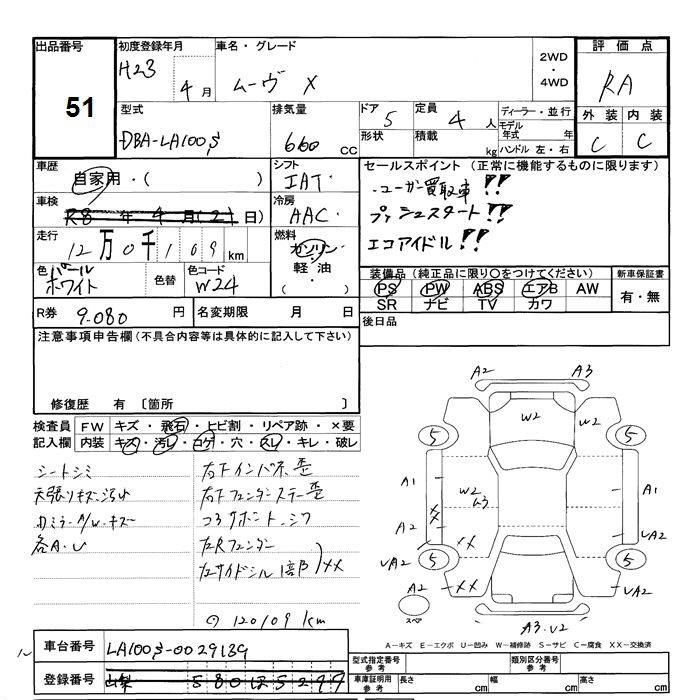 出品番号 51
初度登録年月 H23 4月
車名・グレード ムーヴ X
2WD・4WD
評価点 RA
外装 内装
C C
型式 DBA-LA100S
排気量 660 CC
ドア 5
形状
定員 4人
積載 kg
ディーラー・並行
モデル年式 年
ハンドル 左・右
車歴 自家用・( )
車検 R8年4月(21日)
シフト IAT
冷房 AAC
走行 12万0千109km
燃料 ガソリン・軽油・( )
色 パールホワイト
色替
色コード W24
R券 9.080円
名変期限 月 日
セールスポイント (正常に機能するものに限ります)
・ユーザー買取車!!
プッシュスタート!!
エコアイドル!!
装備品(純正品に限り○をつけてください)
PS PW ABS エアB AW
SR ナビ TV カワ
新車保証書
有・無
後日品
注意事項申告欄(不具合内容等は具体的に記入して下さい)
修復歴 有 〔箇所 〕
検査員記入欄
FW キズ・飛石・ヒビ割・リペア跡・×要
内装 キズ・汚レ・コゲ・穴・スレ・キレ・破レ
シートシミ
天張りキズ・汚れ
各A・U
右Fインパネ歪
右Fフェンダーステー歪
コアサポート シワ
左Rフェンダー
左サイドシル1部 XX
120109km
A2 A3
W2 W2
5 5
A1 A1
A2
XX
UA2 UA2
5 5
A2 XX UA2
スペア
A3.U2
A-キズ E-エクボ U-凹み W-補修跡 S-サビ C-腐食 XX-交換済
車台番号 LA100S-0029139
登録番号 山梨 580
型式指定番号 参考
類別区分番号 参考
車庫証明用 参考
長さ cm
幅 cm
高さ cm